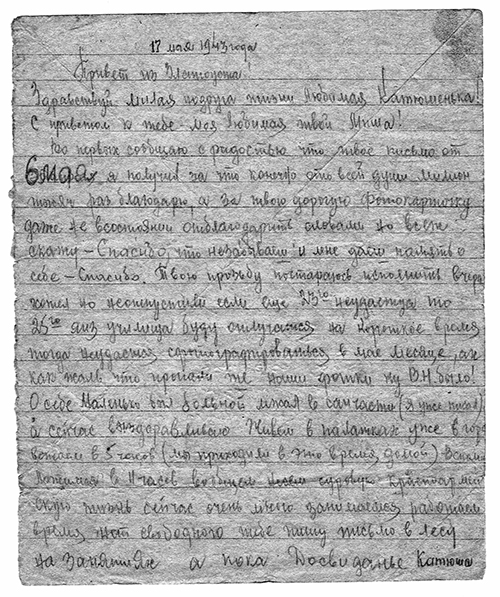 17 мая 1943 года
Привет из Златоуста.
Здравствуй милая подруга жизни Любимая Катюшенька!
С приветом к тебе моя Любимая твой Миша!
Во первых сообщаю с радостью что твое письмо от
6 мая я получил за что конечно ото всей души милион
тысяч раз благодарю, а за твою дорогую фотокарточку
даже не всостоянии отблагодарить словами но всеж
скажу - Спасибо, что незабываеш и мне даеш память о
себе - Спасибо. Твою прозьбу постараюсь исполнить вчера
хотел но неотпустили если еще 23го неудастца то
25го из училища буду отлучатся на короткое время
тогда неудастся сфотографироватся в мае месяце, ах
как жаль что пропали те наши фотки ну В.Н. было!
О себе Маленько был больной лежал в санчасти (я уже писал)
а сейчас выздоравливаю Живем в палатках уже в
в 5 часов (мы приходили в это время домой)
в 11 часов вообщем
жизнь сейчас очень много занимаемся работаем
время нет свободного тебе пишу письмо в лесу
на занятиях а пока Досвиданье Катюша